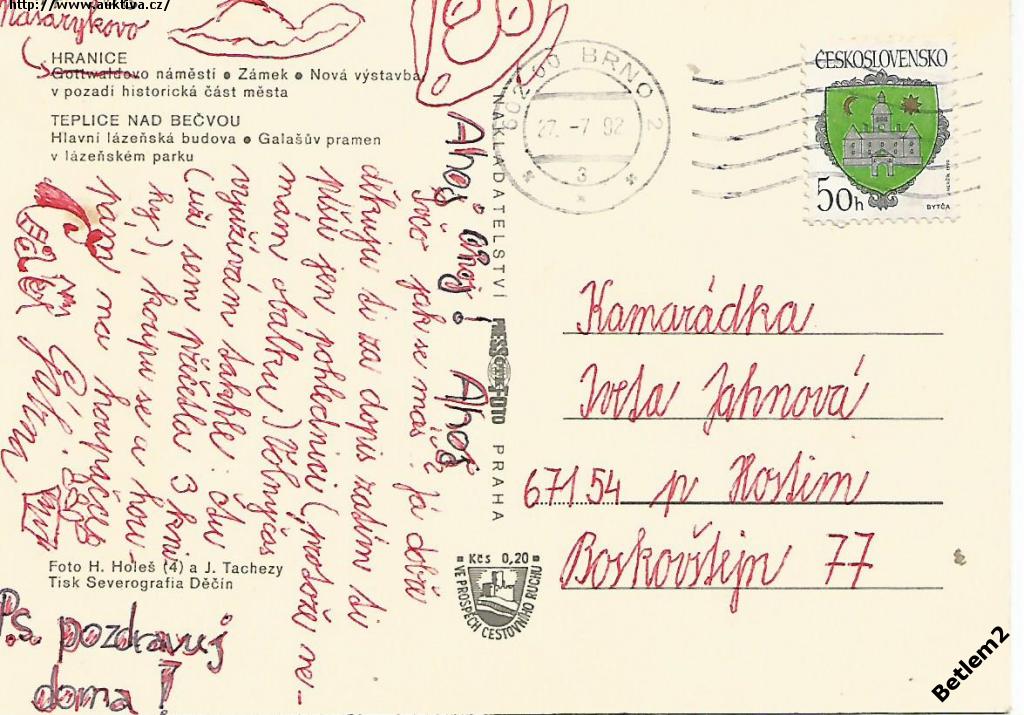 http://www.auktiva.cz/
Masarykovo
HRANICE
Gottwaldovo náměstí ● Zámek ● Nová výstavba,
v pozadí historická část města
TEPLICE NAD BEČVOU
Hlavní lázeňská budova ● Galašův pramen
v lázeňském parku
Ahoj! ahoj! Ahoj
jak se máš já dobře
děkuju ti za dopis zatím ti
píšu jen pohlednici (protože ne-
mám obálku) Volnýčas
využívám takhle: čtu
(už sem přečetla 3 kni-
hy), koupu se a hou-
pam na houpačce
P.s. pozdravuj
doma!
Foto H. Holeš (4) a J. Tachezy
Tisk Severografia Děčín
NAKLADATELSTVÍ PRESSFOTO PRAHA
Kčs 0,20
VE PROSPĚCH CESTOVNÍHO RUCHU
602 00 BRNO 2
27. -7 92
3
ČESKOSLOVENSKO
50h
BYTČA
Kamarádka
Iveta Jahnová
671 54 p Hostim
Boskovštejn 77
Betlem2